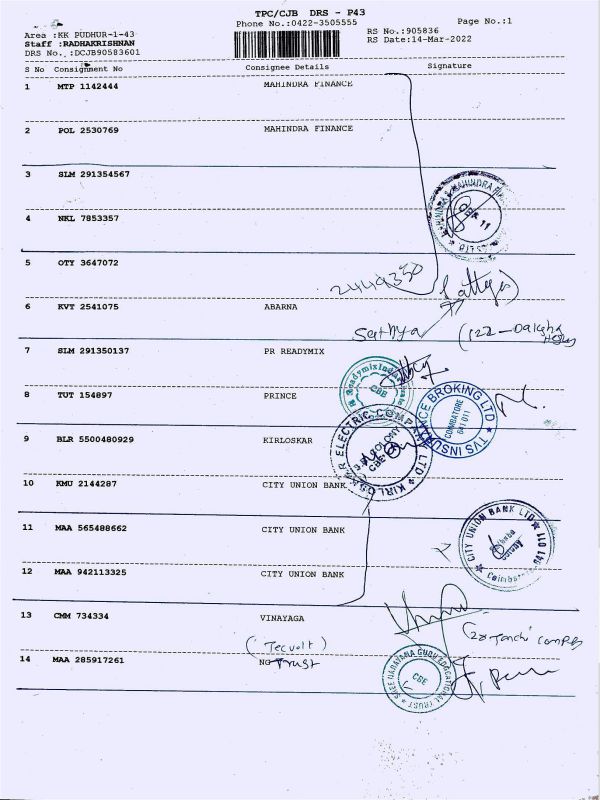 TPC/CJB DRS - P43
Phone No.:0422-3505555
Page No.:1
Area :KK PUDHUR-1-43
Staff :RADHAKRISHNAN
DRS No. :DCJB90583601
RS No.:905836
RS Date:14-Mar-2022
S No Consignment No Consignee Details Signature
1 MTP 1142444 MAHINDRA FINANCE
2 POL 2530769 MAHINDRA FINANCE
3 SLM 291354567
4 NKL 7853357
5 OTY 3647072
2449350
6 KVT 2541075 ABARNA
Sathya
7 SLM 291350137 PR READYMIX
8 TUT 154897 PRINCE
CBE
TVS INSURANCE BROKING LTD
COIMBATORE
641 011
9 BLR 5500480929 KIRLOSKAR
KIRLOSKAR ELECTRIC COMPANY LTD
10 KMU 2144287 CITY UNION BANK
11 MAA 565488662 CITY UNION BANK
CITY UNION BANK LTD
12 MAA 942113325 CITY UNION BANK
13 CMM 734334 VINAYAGA
(Tecvolt)
14 MAA 285917261 NG Trust
SREE NARAYANA GURU EDUCATIONAL TRUST
CBE